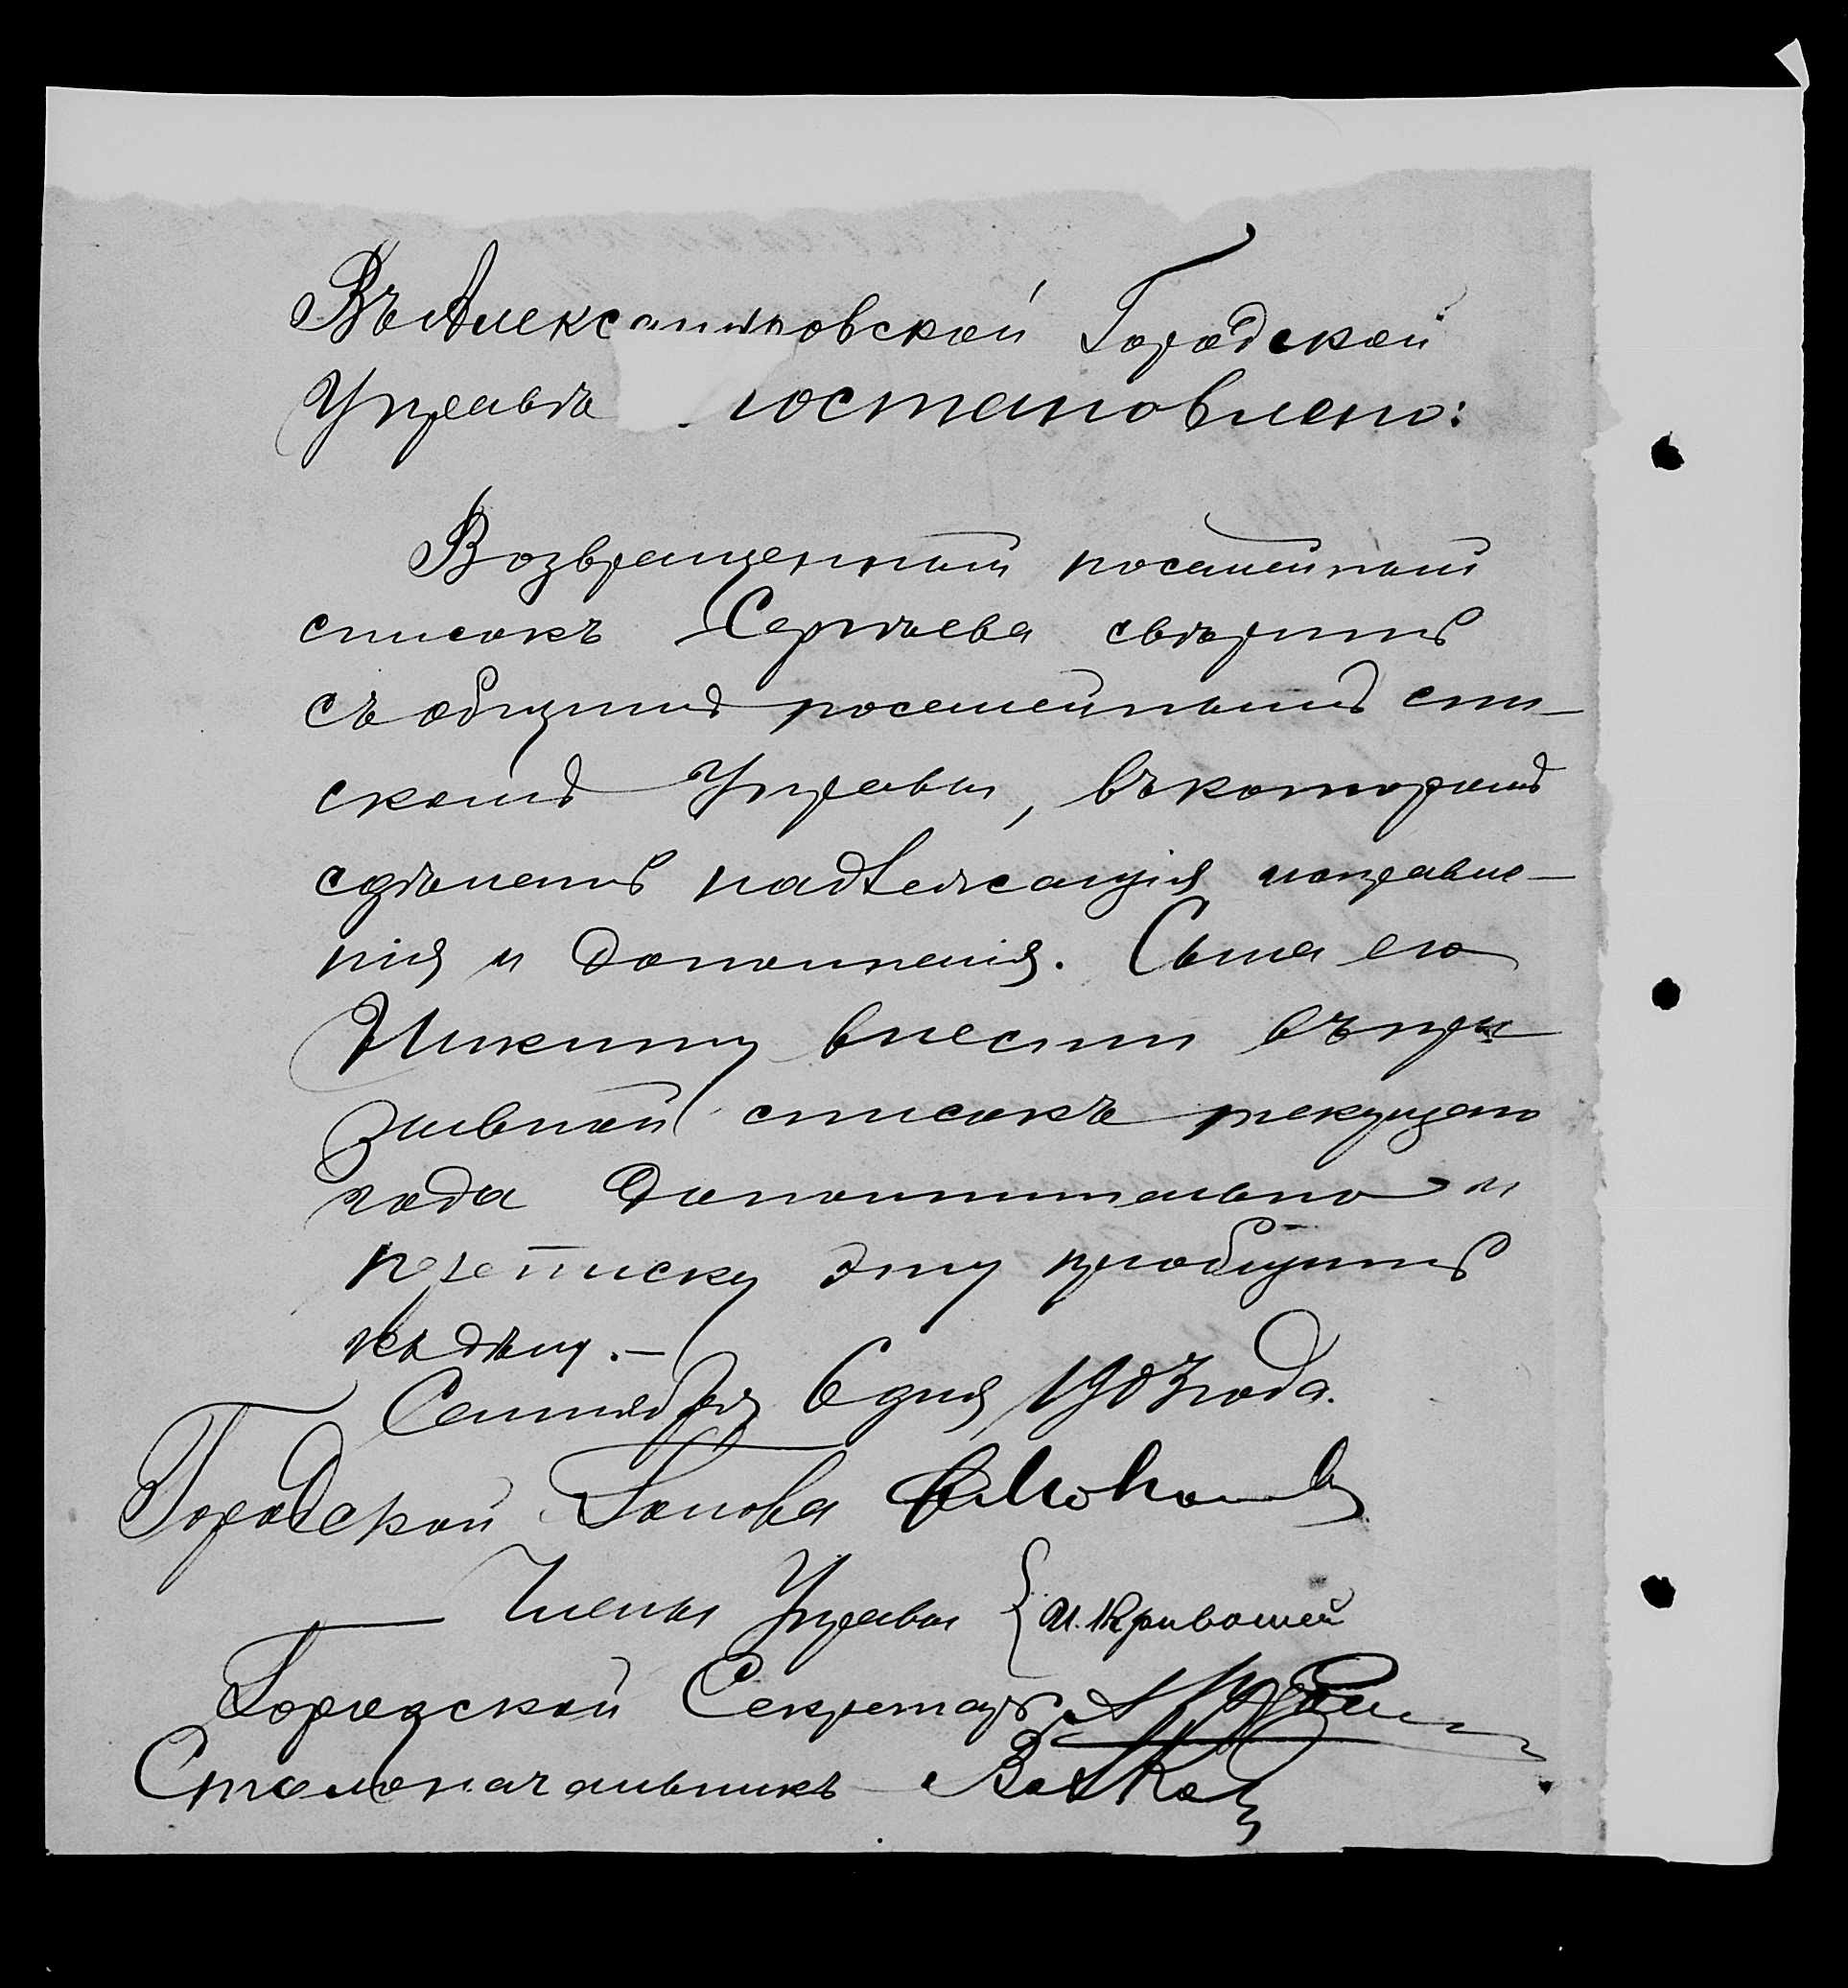 Въ Александровской Городской
Управѣ постановлено:
Возвращенный посемейный
списокъ Сергѣева свѣрить
съ общимъ посемейнымъ спи-
скомъ Управы, въ которомъ
сдѣлать надлежащія исправле-
нія и дополненія. Сына его
Никиту внести въ при
зывной списокъ текущаго
года дополнительно и
переписку эту пріобщить
къ дѣлу.—
Сентября 6 дня 1903 года.
Городской Голова
Члены Управы { И. Кривошей
Городской Секретарь
Столоначальникъ